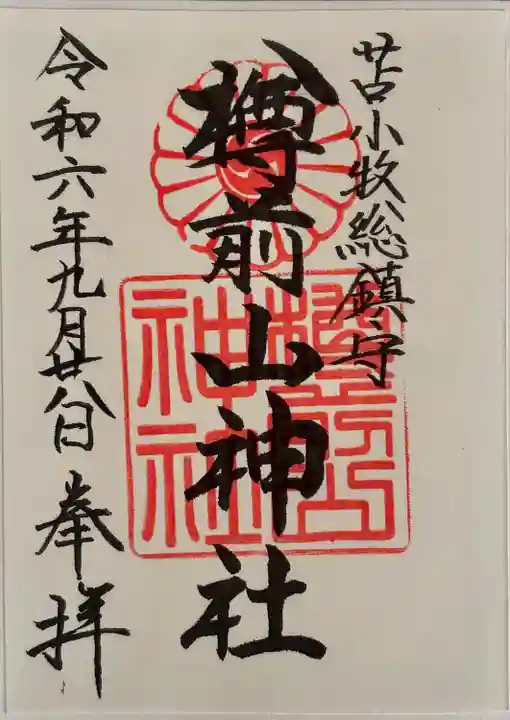 苫小牧総鎮守
樽前山神社
令和六年九月廿八日
奉拝
樽前山
神社